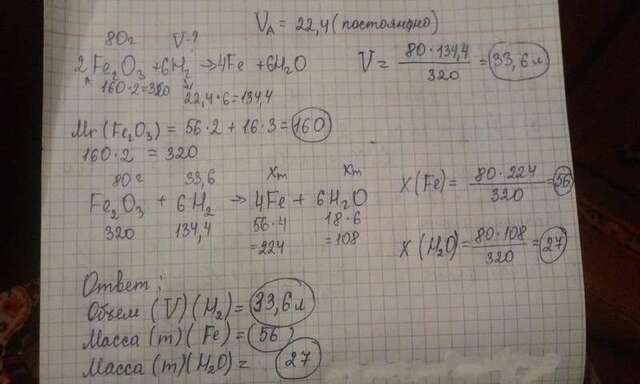 V_A = 22,4 (постоянно)
80г V-?
2Fe₂O₃ + 6H₂ → 4Fe + 6H₂O
160·2=320
22,4·6=134,4
V = 80·134,4 / 320 = 33,6 л
Mr(Fe₂O₃) = 56·2 + 16·3 = 160
160·2 = 320
80г 33,6 Xm Xm
Fe₂O₃ + 6H₂ → 4Fe + 6H₂O
320 134,4 56·4 18·6
=224 =108
X(Fe) = 80·224 / 320 = 56
X(H₂O) = 80·108 / 320 = 27
Ответ:
Объем (V)(H₂) = 33,6 л
Масса (m)(Fe) = 56
Масса (m)(H₂O) = 27